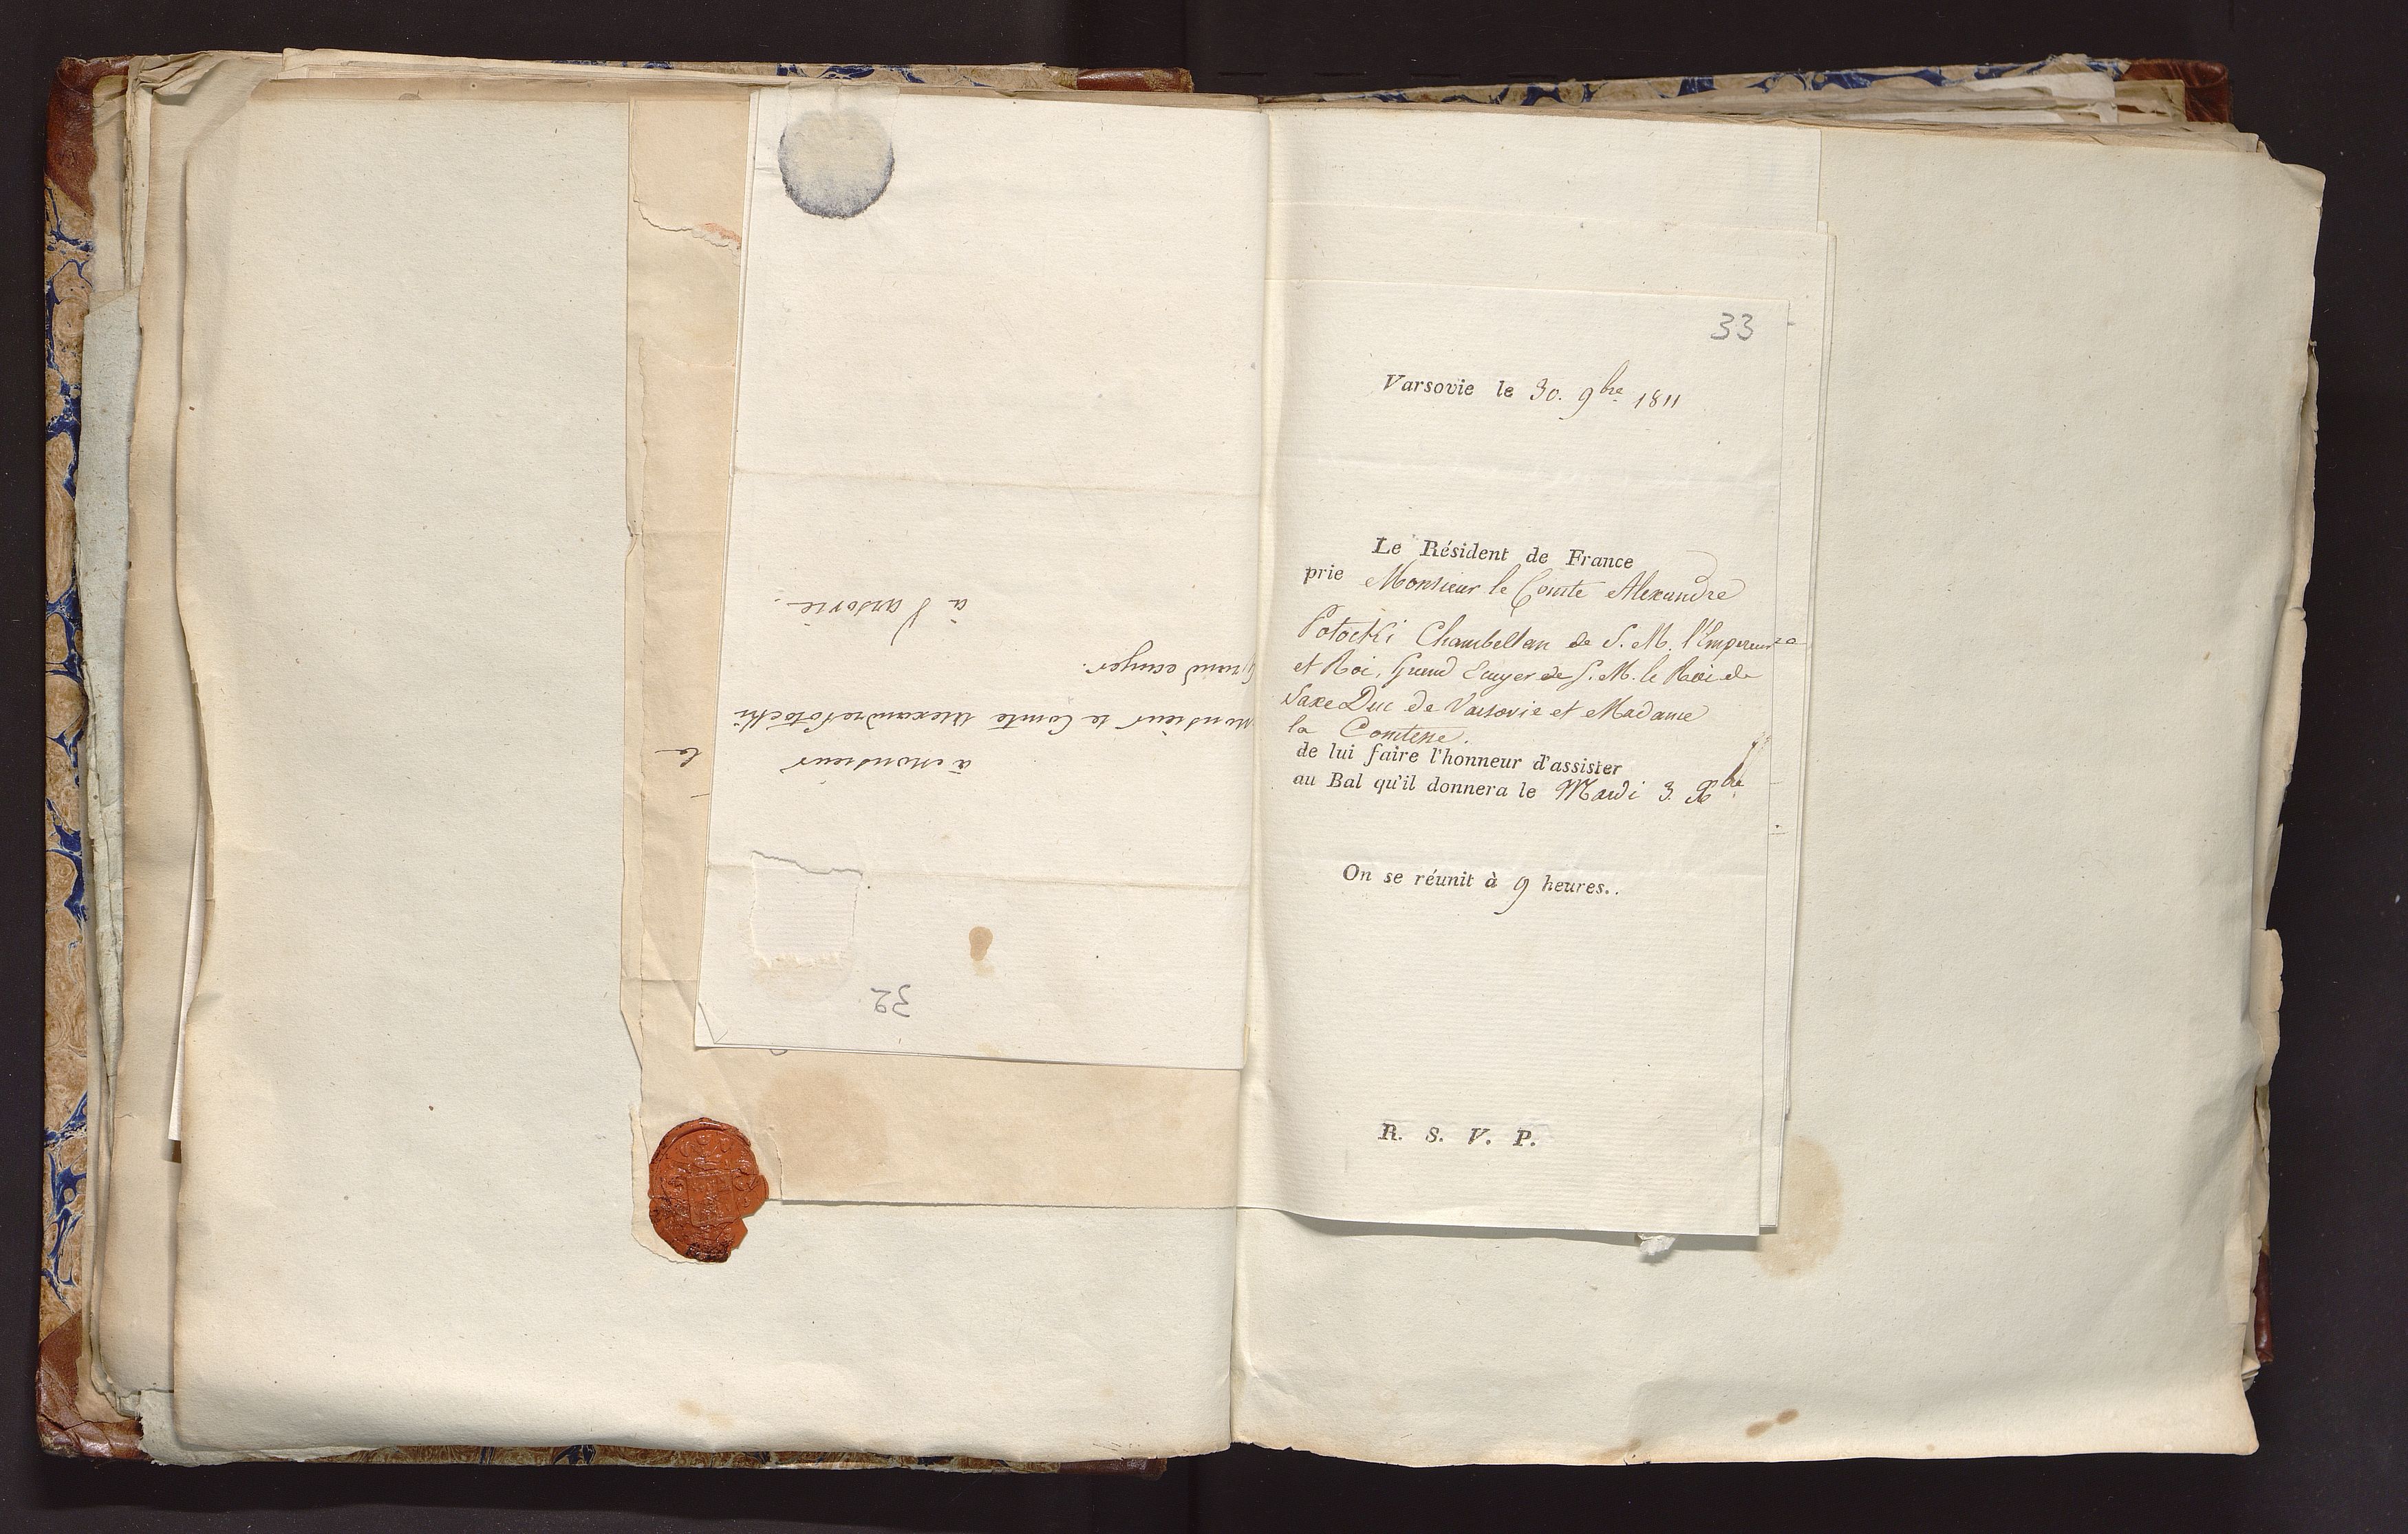 à Monsieur
Monsieur le Comte Alexandre Potocki
Grand ecuyer.
à Varsovie.
32
le
33
Varsovie le 30. 9bre 1811
Le Résident de France
prie Monsieur le Comte Alexandre
Potocki Chambellan de S. M. l'Empereur
et Roi, Grand Ecuyer de S. M. le Roi de
Saxe Duc de Varsovie et Madame
la Comtesse.
de lui faire l'honneur d'assister
au Bal qu'il donnera le Mardi 3. Xbre
On se réunit à 9 heures..
R. S. V. P.